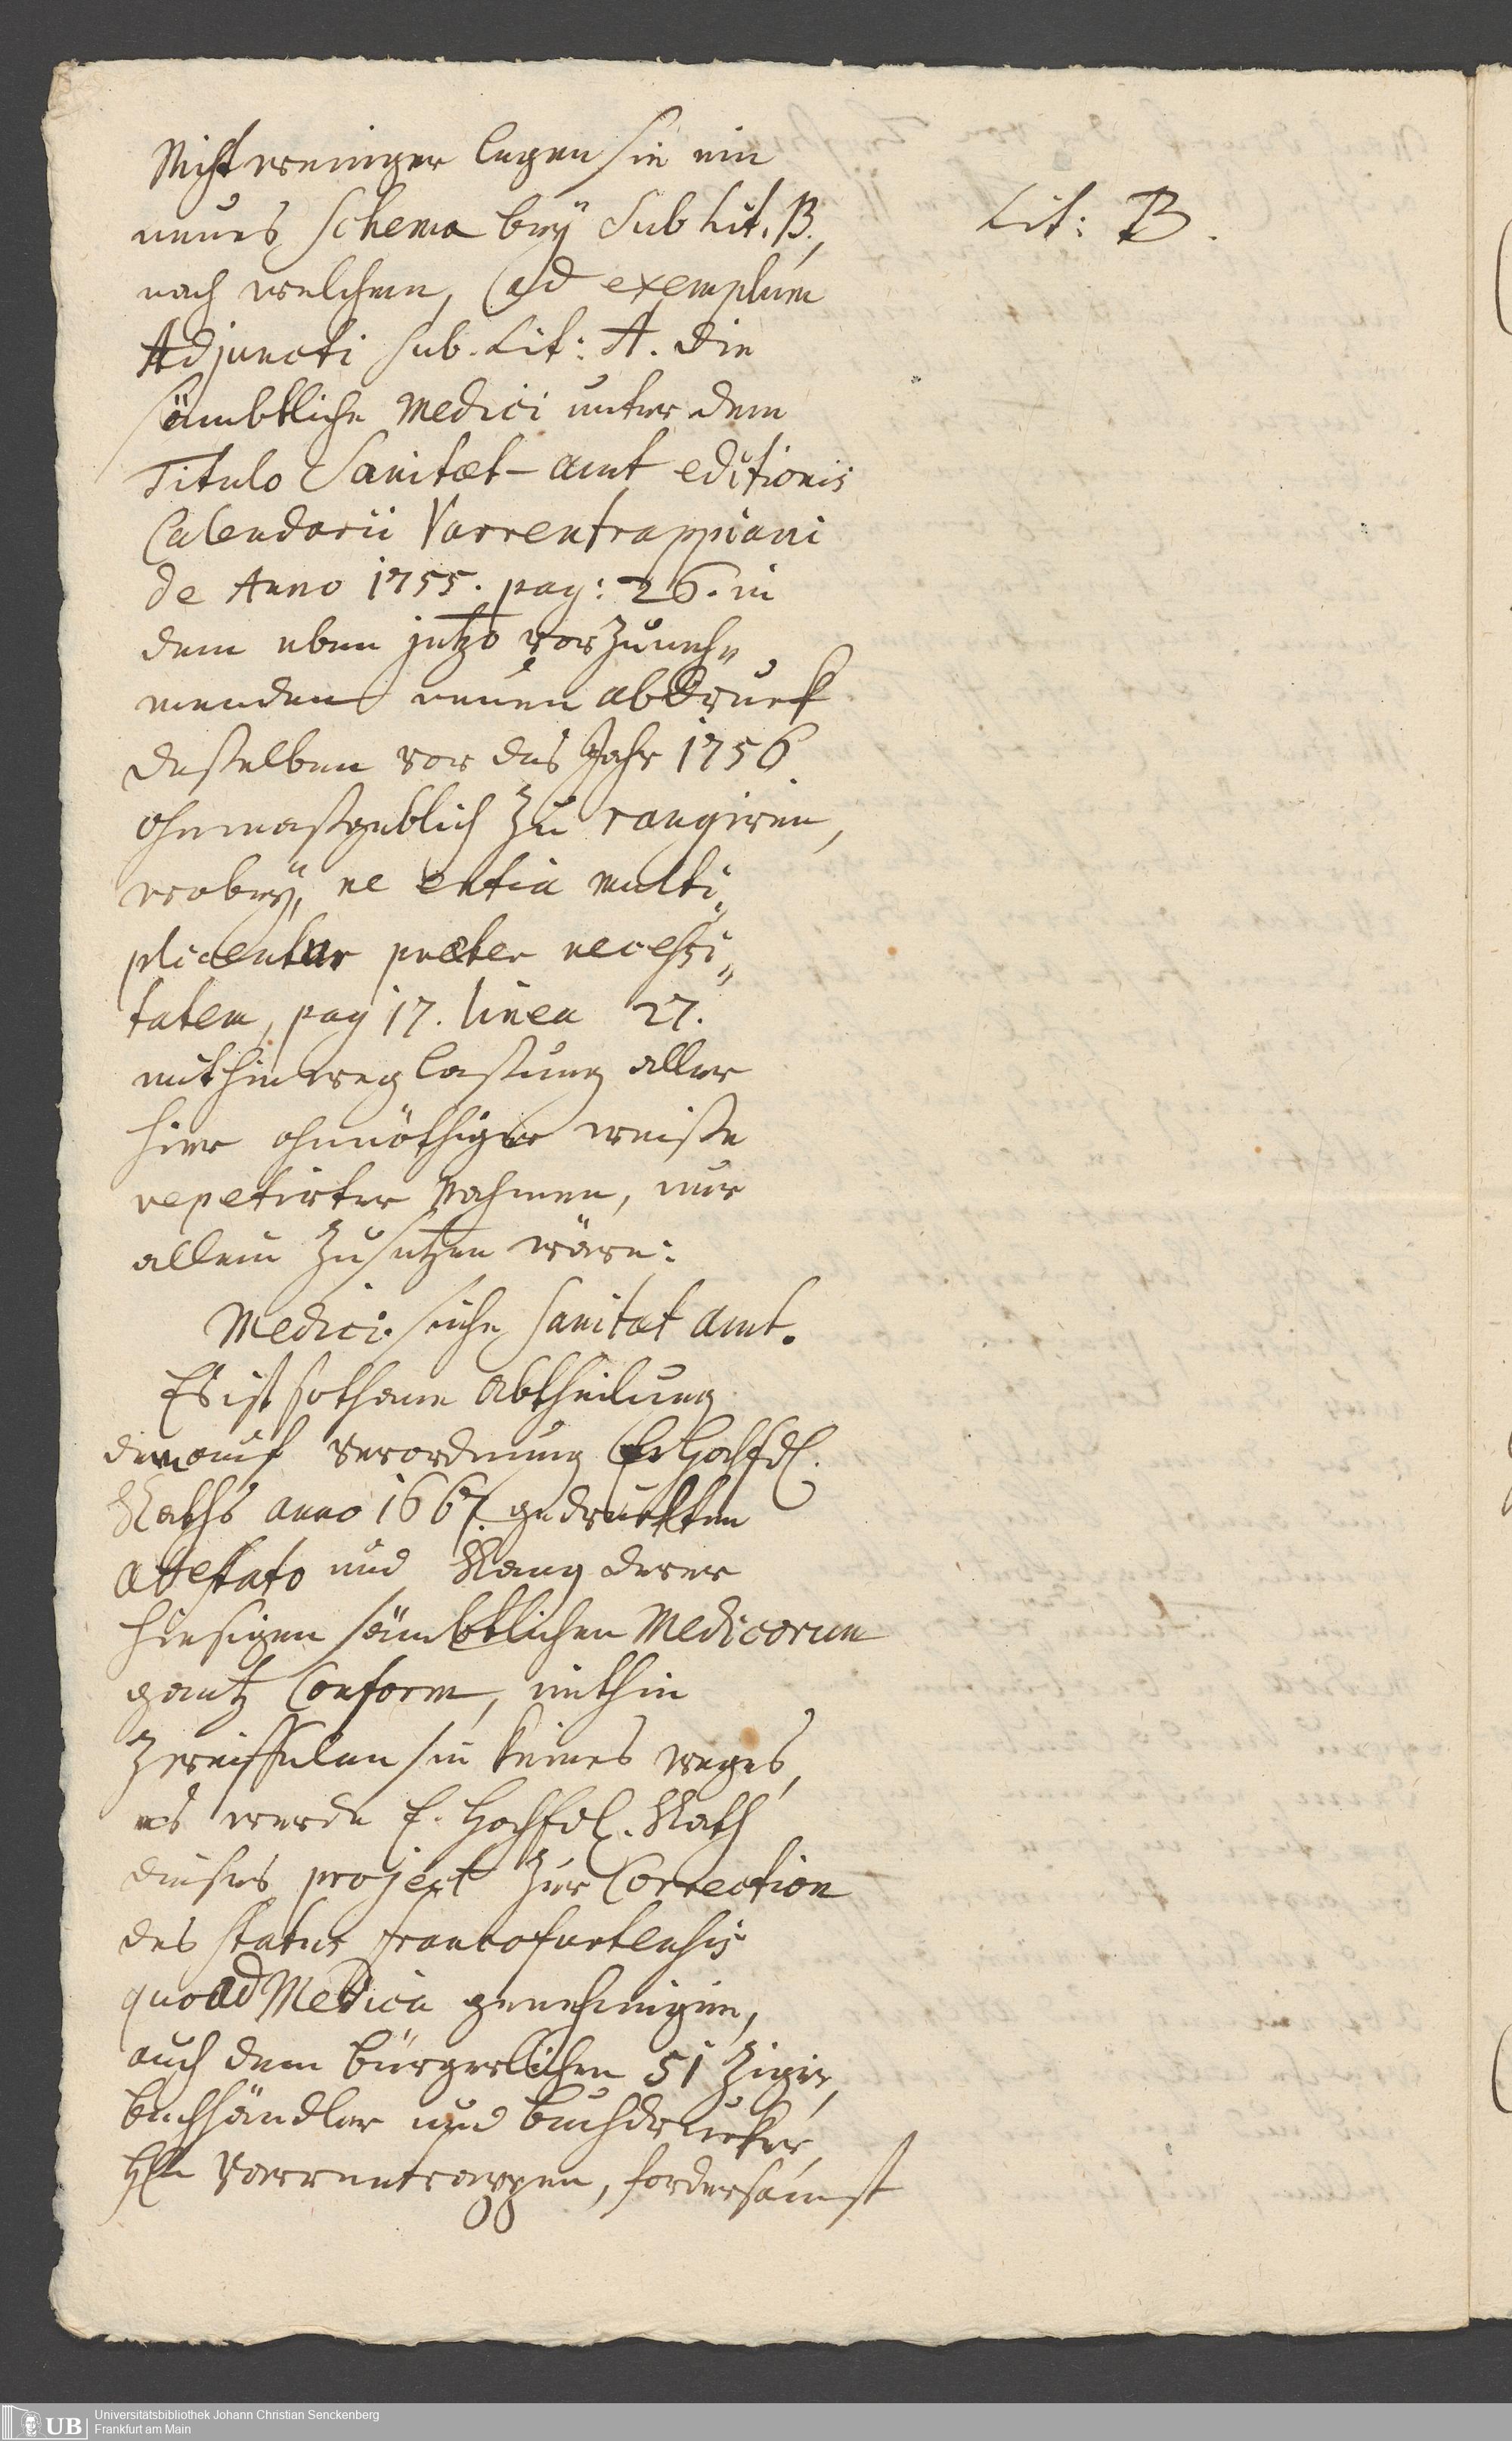 Nicht weniger legen sie ein
neues Schema bey sub Lit. B.,
Lit: B.
nach welchem, (ad exemplum
Adjuncti sub. Lit: A. die
sämbtliche Medici unter dem
Titulo Sanitæt-amt editionis
Calendarii Varrentrappiani
de Anno 1755. pag: 26. in
dem eben jetzo vorzuneh„
menden neuen abdruck
deßelben vor das Jahr 1756
ohnmaßgeblich zu rangiren,
wobey, ne entia multi„
plicentur præter necessi„
tatem, pag 17. linea 27.
mit hinweglaßung aller
hier ohnnöthiger weiße
repetirter Nahmen, nur
allein zu setzen wäre:
Medici. siehe Sanitat amt.
Es ist sothane Abtheilung
dem auf verordnung E. Hochedl.
Raths anno 1667. gedruckten
Attestato und Rang derer
hiesigen sämbtlichen Medicorum
gantz Conform, mithin
zweiffelen sie keines weges,
es werde E. Hochedl. Rath
dieses project zur Correction
des status francofurtensis
quoad Medica genehmigen,
auch dem bürgerlichen 51 ziger,
buchhändler und buchdrucker,
Hln Varrentrappen, fordersamst
Universitätsbibliothek Johann Christian Senckenberg
UB Frankfurt am Main